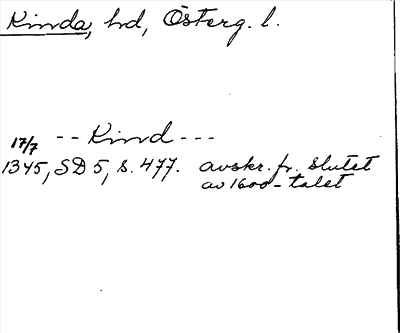 Kinda, hd, Österg. l.
17/7 -- Kind ---
1345, SD 5, s. 477. avskr. fr. slutet
av 1600-talet